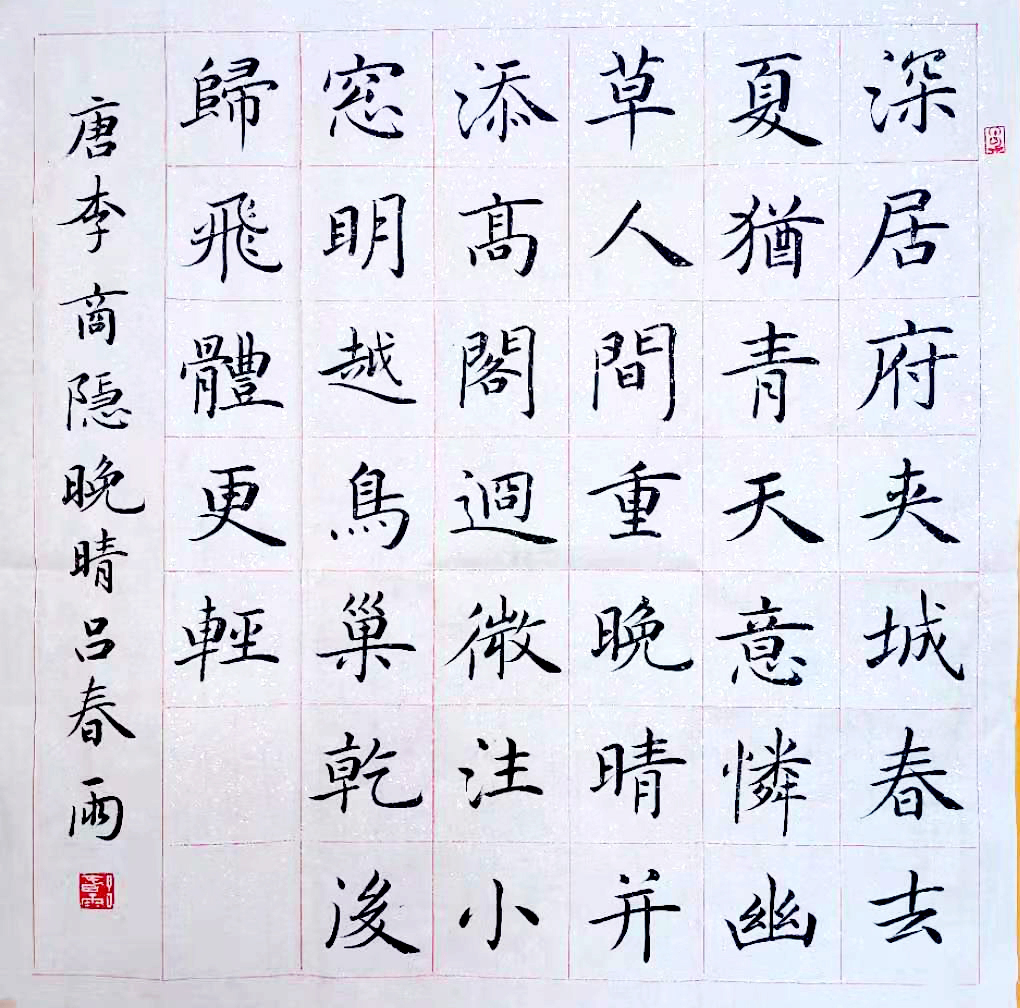 深居府夹城春去
夏猶青天意憐幽
草人間重晚晴并
添高閣迥微注小
窓明越鳥巢乾後
歸飛體更輕
唐李商隐晚晴吕春雨